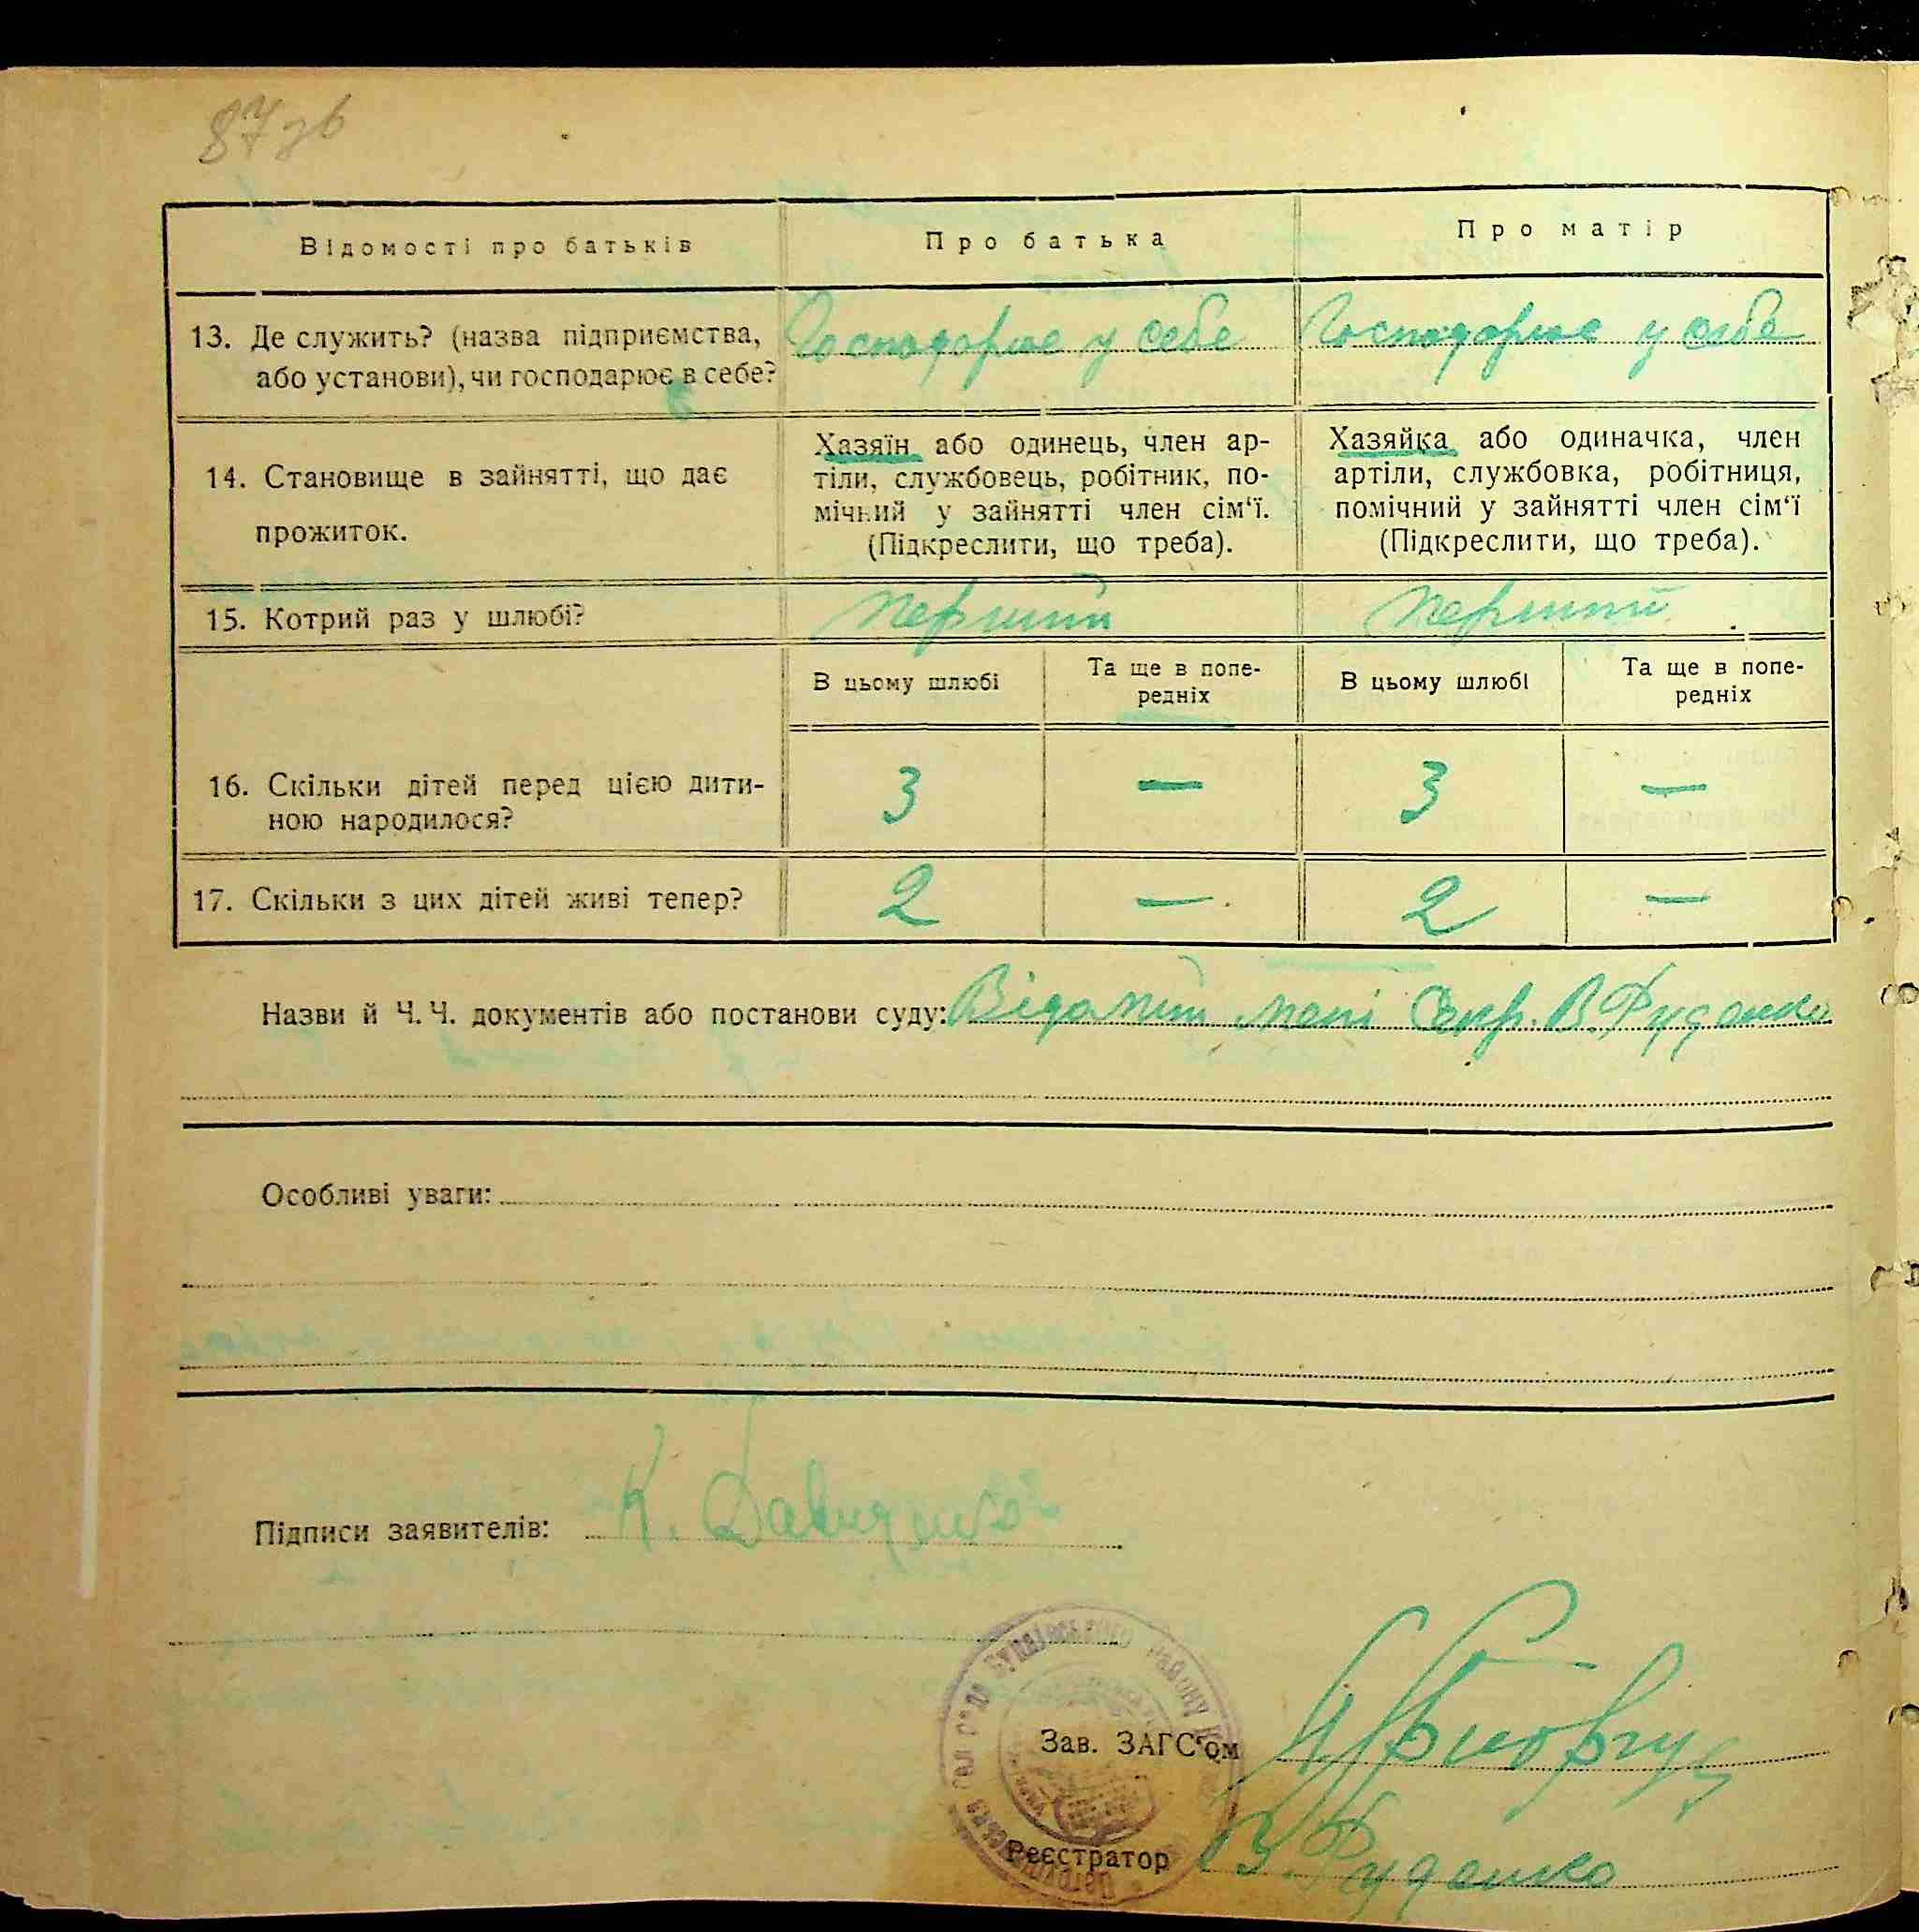 87 зв
Відомості про батьків
Про батька
Про матір
13. Де служить? (назва підприємства, або установи), чи господарює в себе?
Господарює у себе
Господарює у себе
14. Становище в зайнятті, що дає прожиток.
Хазяїн або одинець, член ар-
тіли, службовець, робітник, по-
мічний у зайнятті член сім‘ї.
(Підкреслити, що треба).
Хазяйка або одиначка, член
артіли, службовка, робітниця,
помічний у зайнятті член сім‘ї
(Підкреслити, що треба).
15. Котрий раз у шлюбі?
перший
перший
В цьому шлюбі
Та ще в попе-
редніх
В цьому шлюбі
Та ще в попе-
редніх
16. Скільки дітей перед цією дити-
ною народилося?
3
—
3
—
17. Скільки з цих дітей живі тепер?
2
—
2
—
Назви й Ч. Ч. документів або постанови суду: Відомий мені Секр. В. Руденко
Особливі уваги:
Підписи заявителів: К. Давиденко
Зав. ЗАГС‘ом
Реєстратор В. Руденко
району